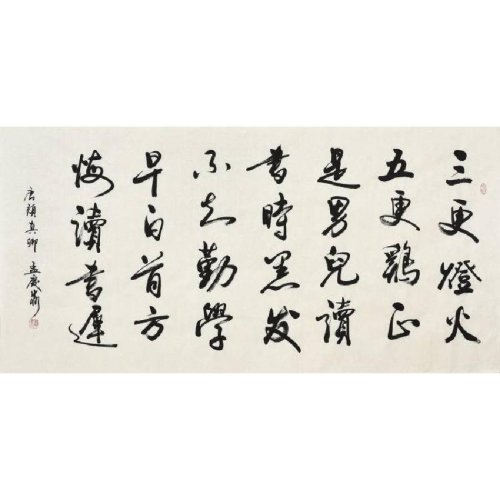 三更燈火
五更鷄正
是男兒讀
書時黑发
不知勤學
早白首方
悔讀書遲
唐顏真卿 孟慶